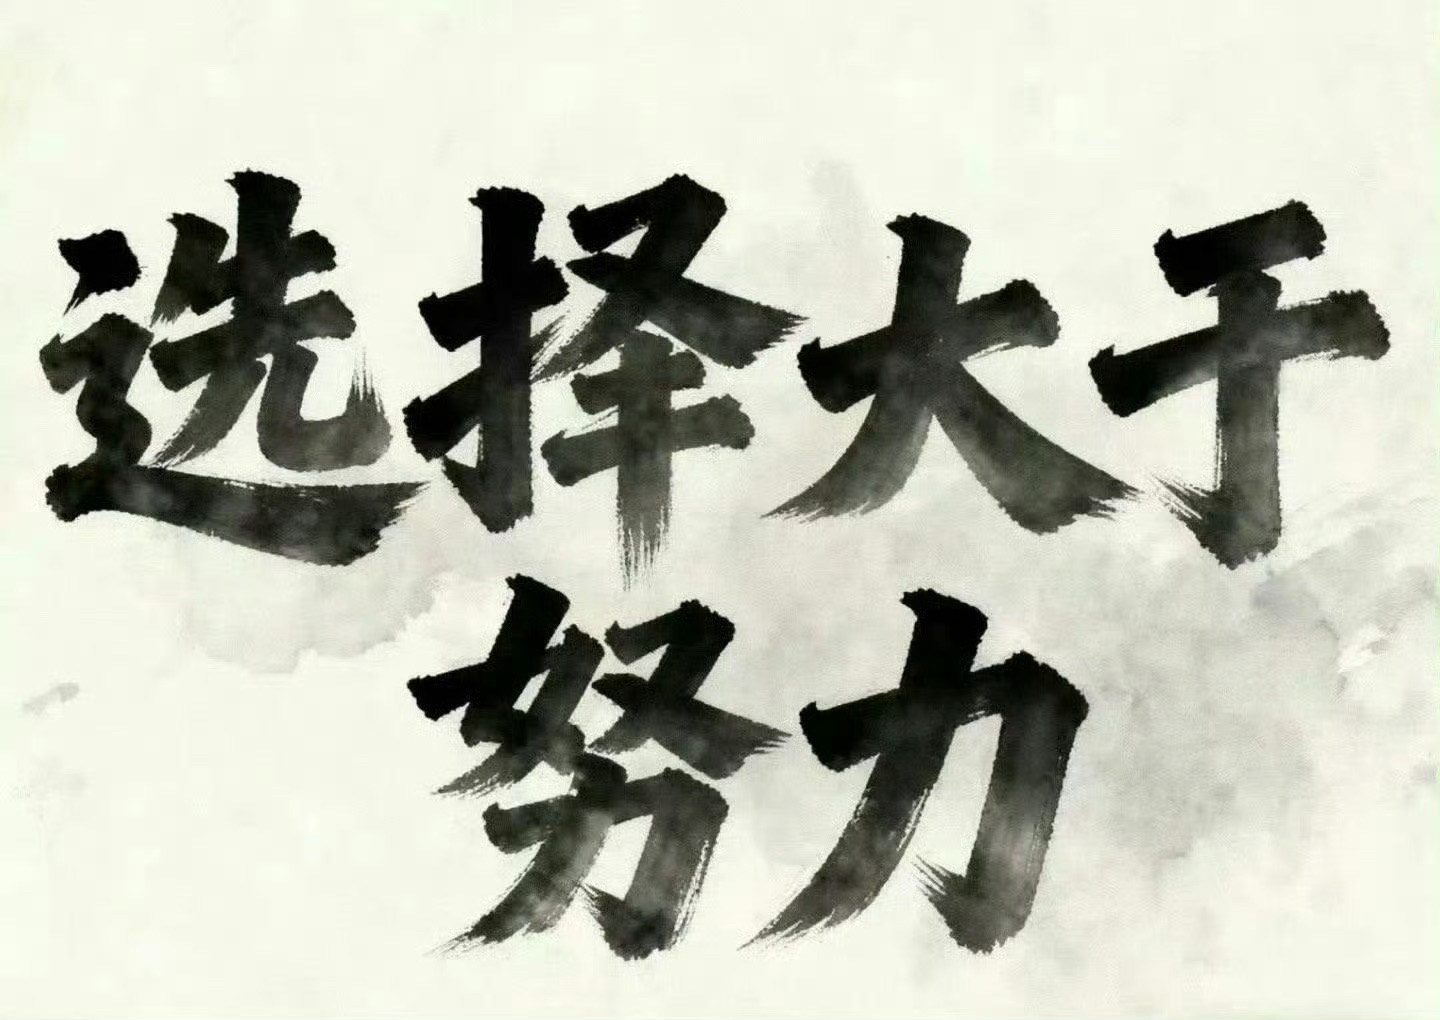 选择大于
努力